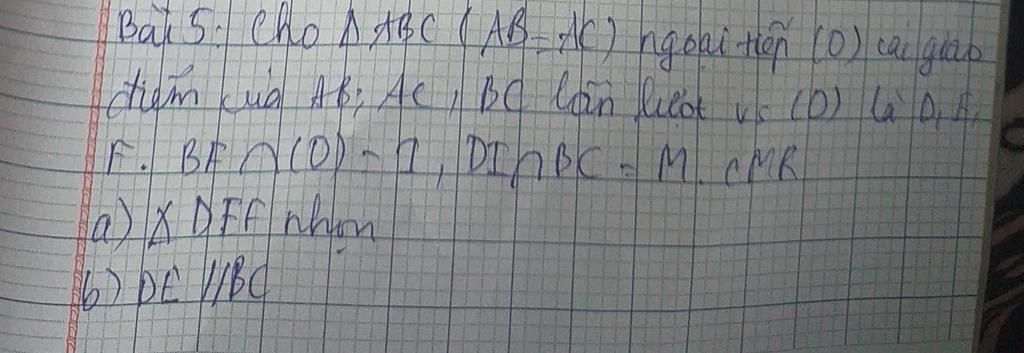 Bài 5: Cho Δ ABC (AB = AC) ngoại tiếp (O) các giao
điểm của AB, AC, BC lần lượt vs (O) là D, E,
F. BE ∩ (O) = I, DI ∩ BC = M. CMR
a) Δ DEF nhọn
b) DE // BC